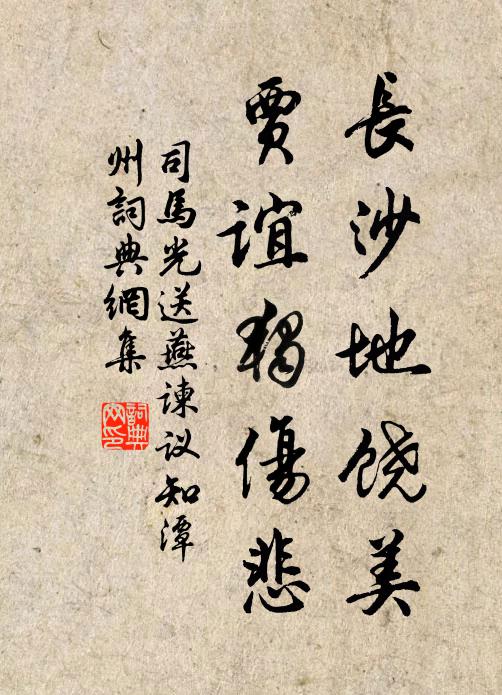 長沙地饶美
賈誼獨傷悲
司馬光送燕諫议知潭
州詞典網集
詞典
网印